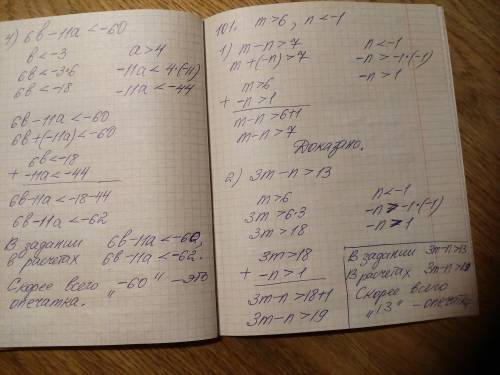 4) 6в-11а < -60
в < -3      а > 4
6в < -3·6      -11а < 4·(-11)
6в < -18      -11а < -44
6в-11а < -60
6в+(-11а) < -60
6в < -18
+ -11а < -44
6в-11а < -18-44
6в-11а < -62
В задании 6в-11а < -60,
в расчетах 6в-11а < -62.
Скорее всего „-60“ - это
опечатка.
101. m > 6, n < -1
1) m-n > 7      n < -1
m+(-n) > 7      -n > -1·(-1)
m > 6      -n > 1
+ -n > 1
m-n > 6+1
m-n > 7
Доказано.
2) 3m-n > 13
m > 6      n < -1
3m > 6·3      -n > -1·(-1)
3m > 18      -n > 1
3m > 18
+ -n > 1
3m-n > 18+1
3m-n > 19
В задании 3m-n>13
В расчетах 3m-n>19
Скорее всего
„13“ - опечатка